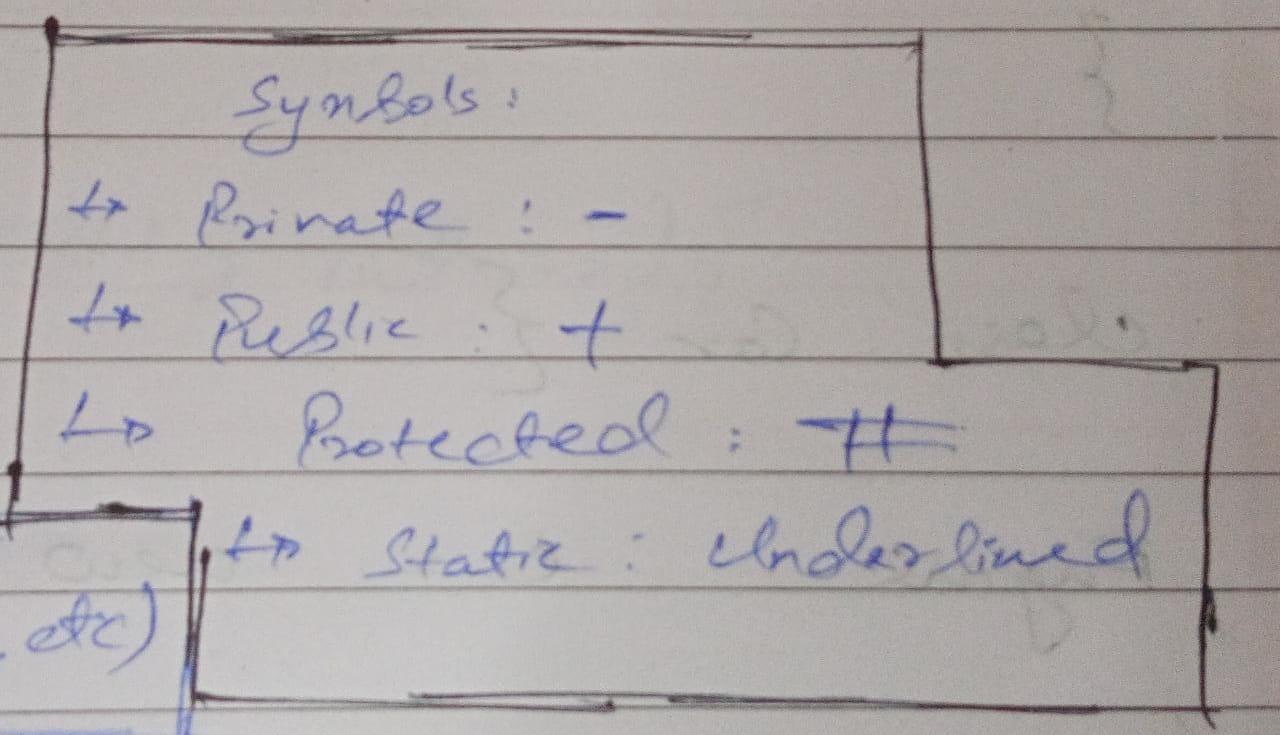 Symbols:
↳ Private : -
↳ Public : +
↳ Protected : #
↳ Static : Underlined
etc)